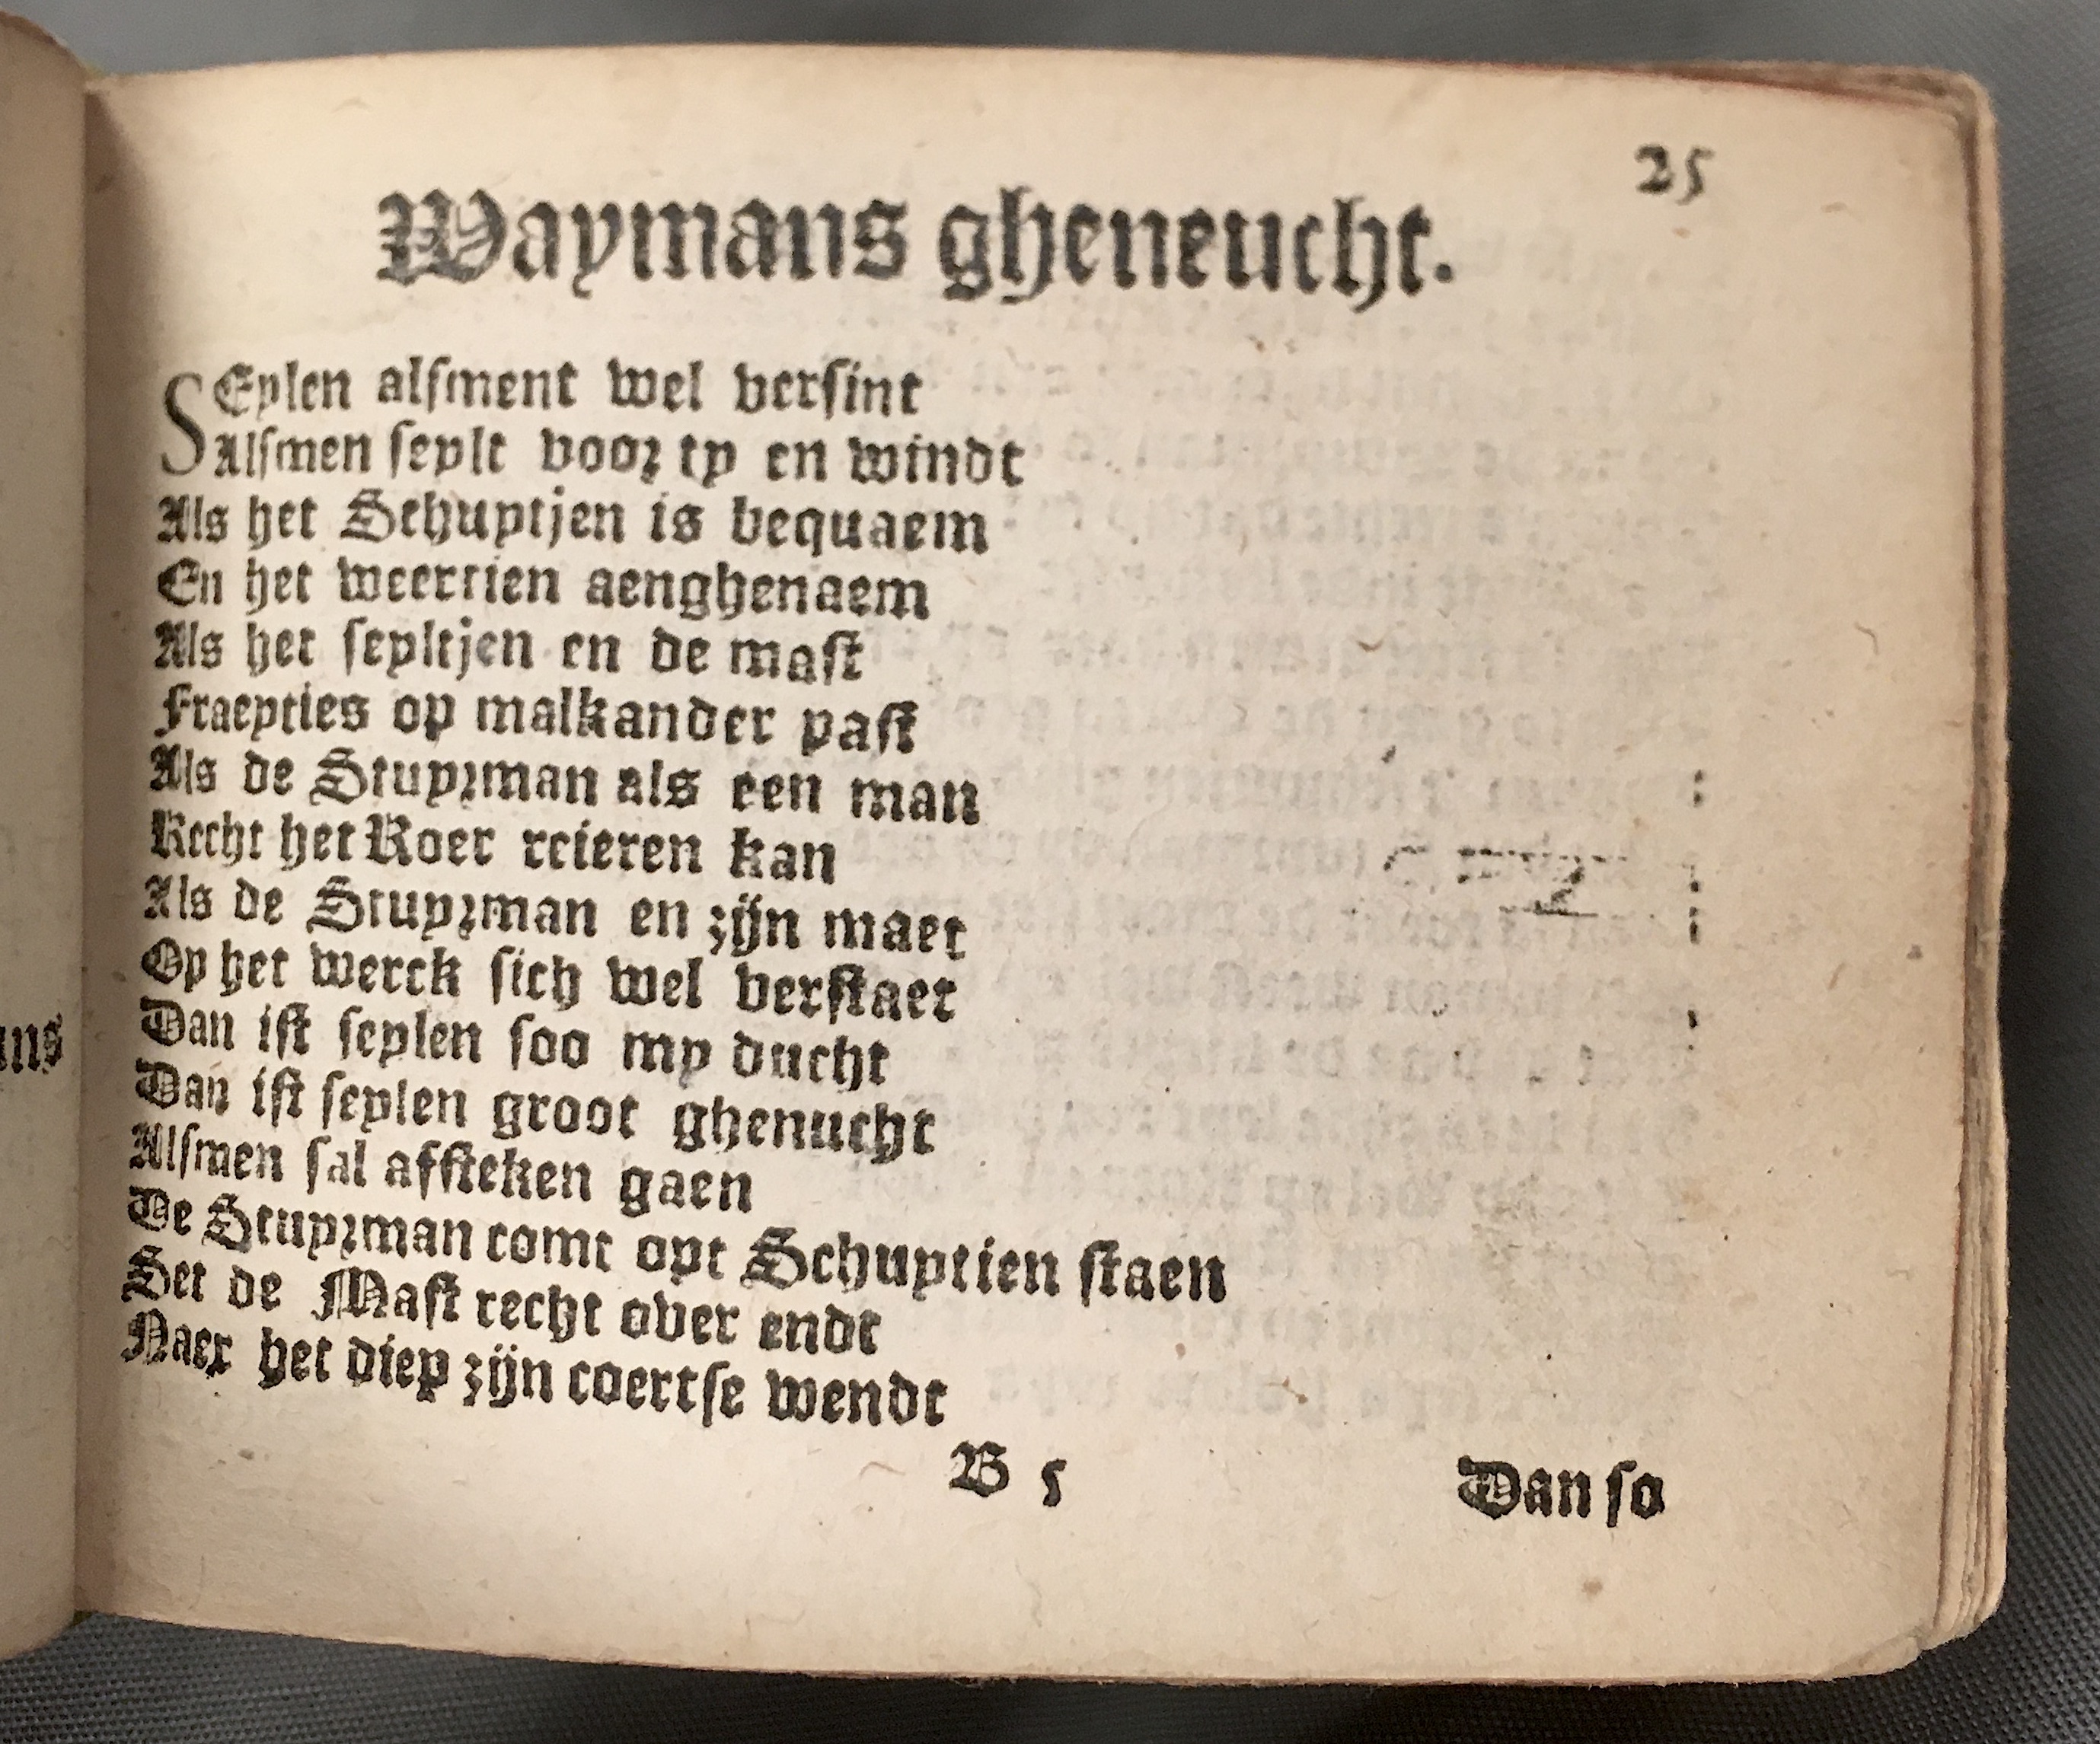 25
Waymans gheneucht.
SEylen alsment wel versint
Alsmen seylt voor ty en windt
Als het Schuytjen is bequaem
En het weertien aenghenaem
Als het seyltjen en de mast
Fraeyties op malkander past
Als de Stuyrman als een man
Recht het Roer reieren kan
Als de Stuyrman en zijn maet
Op het werck sich wel verstaet
Dan ist seylen soo my ducht
Dan ist seylen groot ghenucht
Alsmen sal affteken gaen
De Stuyrman comt opt Schuytien staen
Set de Mast recht over endt
Naer het diep zijn coertse wendt
B 5
Dan so
ans